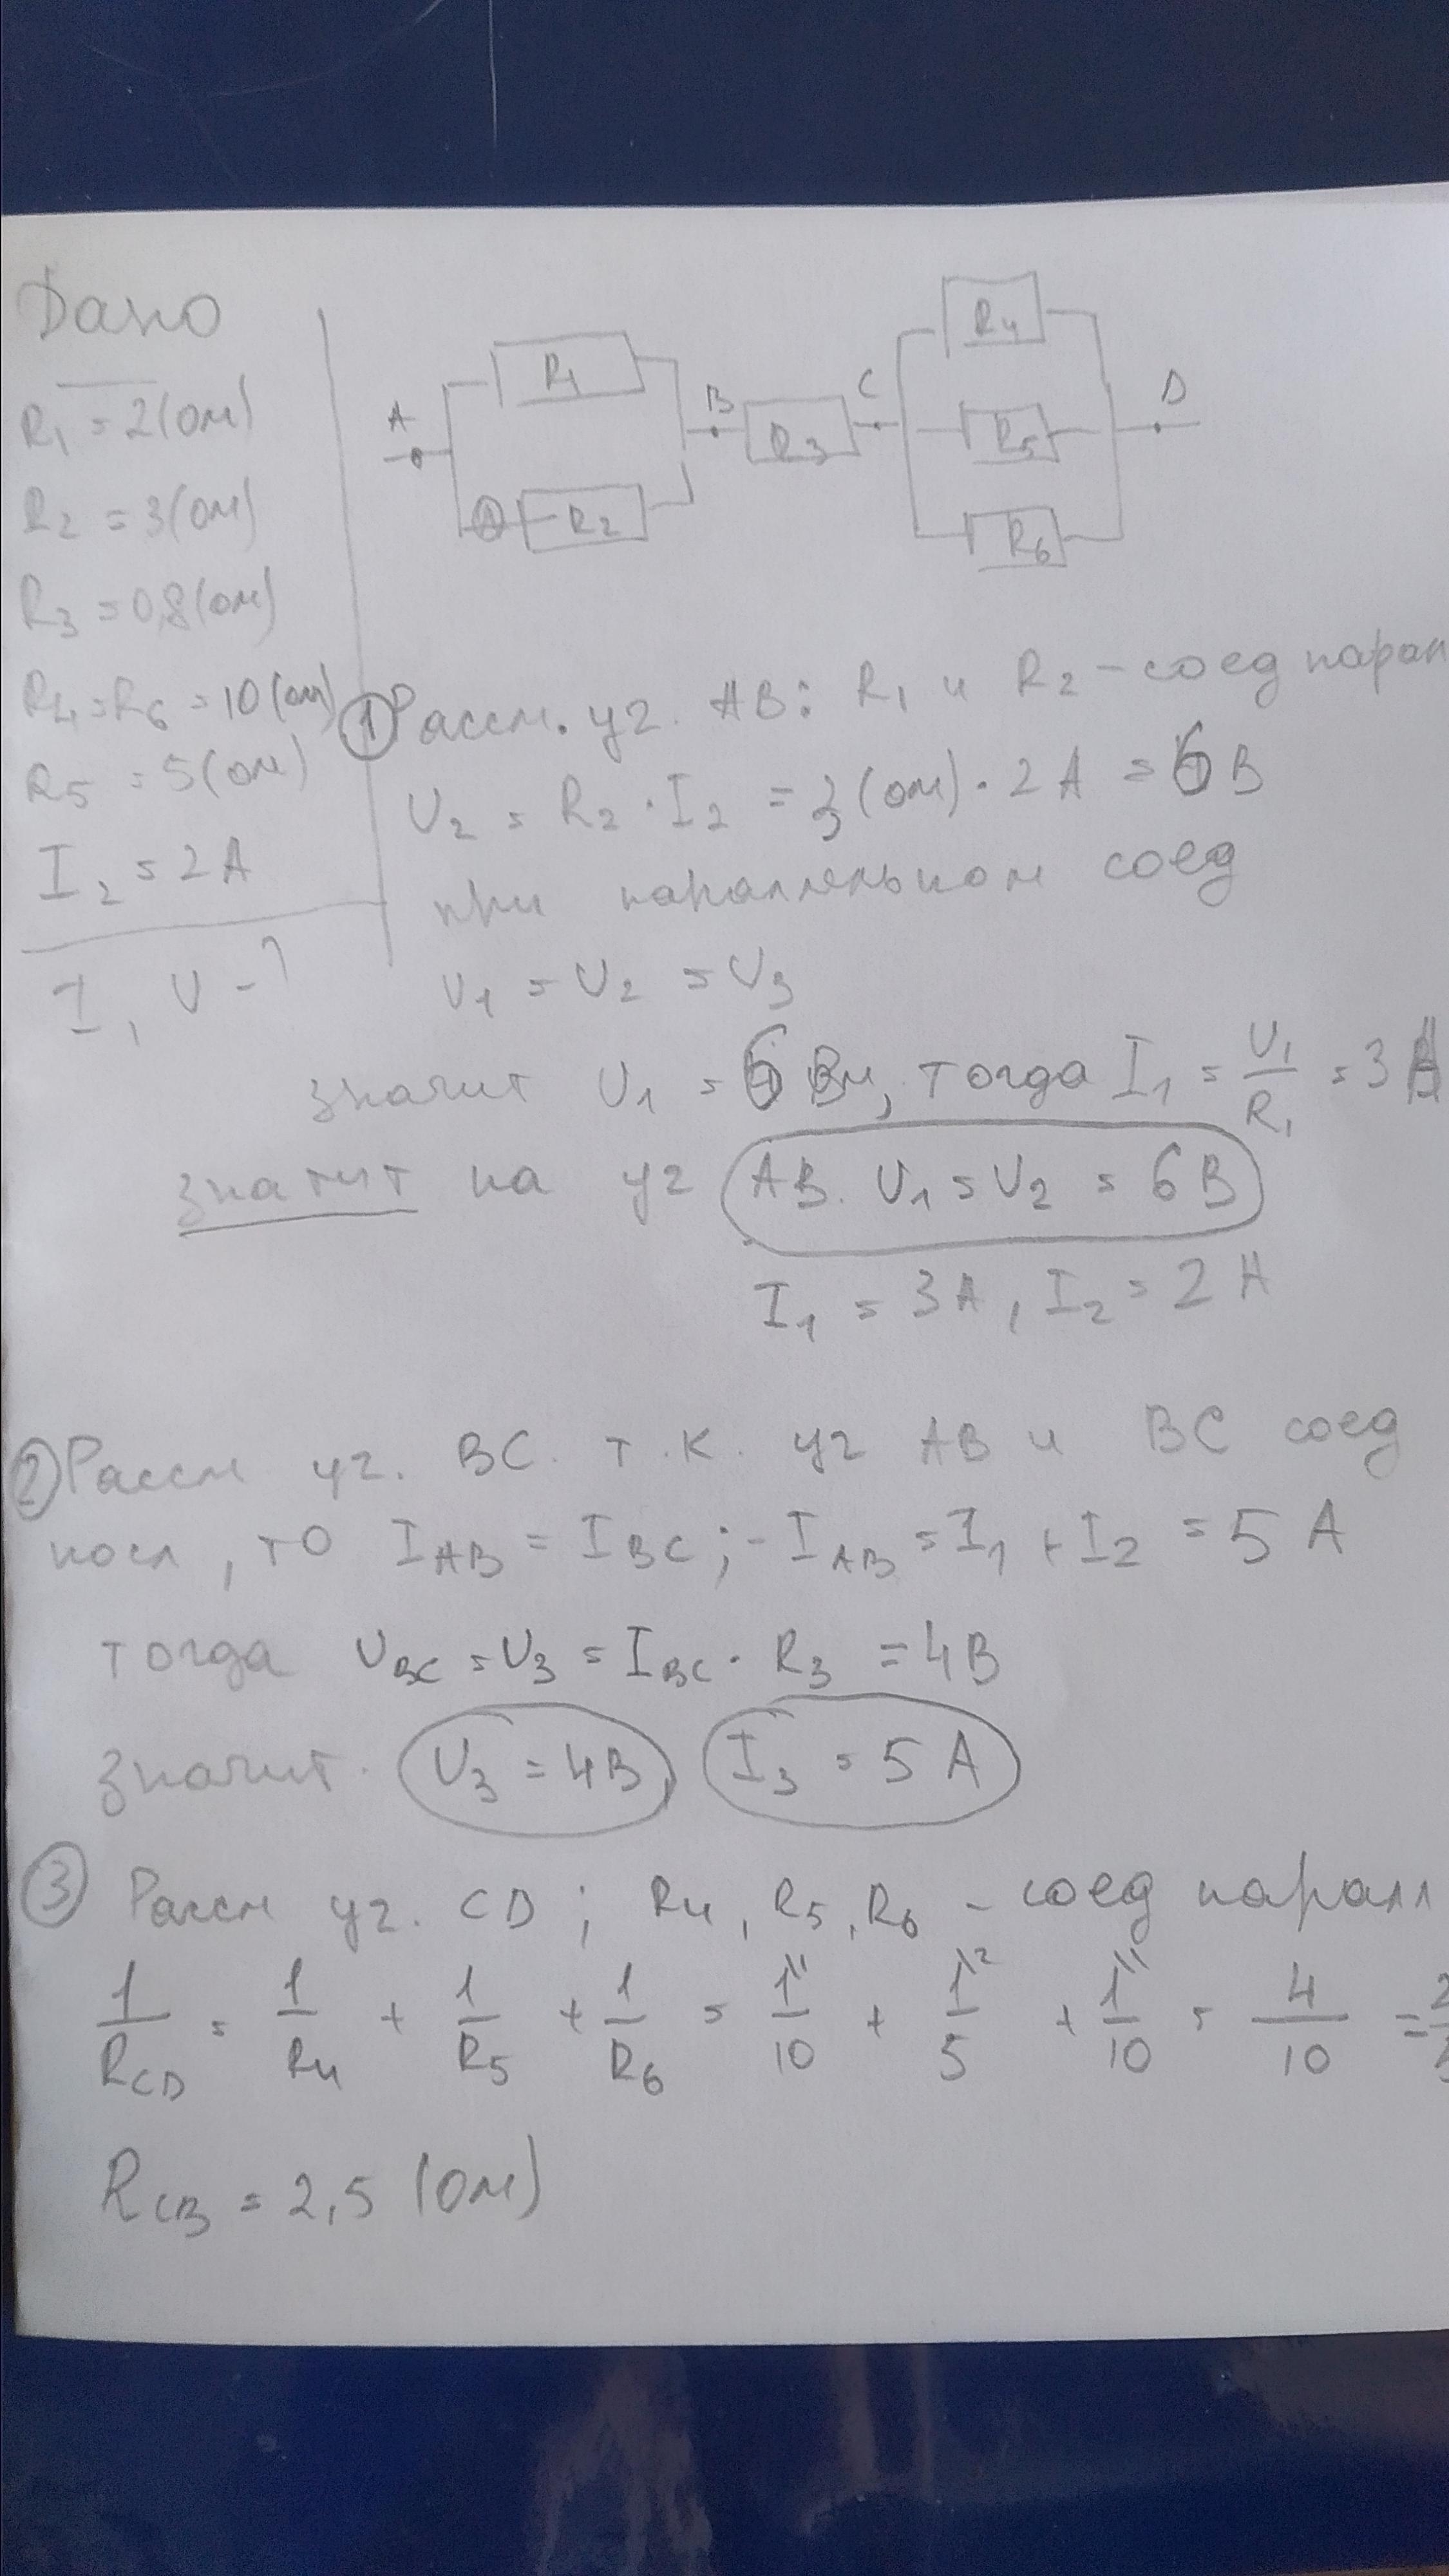 Дано
R1 = 2(ом)
R2 = 3(ом)
R3 = 0,8(ом)
R4 = R6 = 10(ом)
R5 = 5(ом)
I2 = 2A
I, U - ?
A
R1
A
R2
B
R3
C
R4
R5
R6
D
① Рассм. уч. AB: R1 и R2 - соед парал
U2 = R2 · I2 = 3(ом) · 2A = 6В
при параллельном соед
U1 = U2 = U3
значит U1 = 6 В, тогда I1 = U1/R1 = 3А
значит на уч AB. U1 = U2 = 6В
I1 = 3A, I2 = 2A
② Рассм уч. BC. т.к. уч AB и BC соед
посл, то IAB = IBC; - IAB = I1 + I2 = 5 A
тогда UBC = U3 = IBC · R3 = 4В
значит. U3 = 4В, I3 = 5 A
③ Рассм уч. CD; R4, R5, R6 - соед паралл
1/RCD = 1/R4 + 1/R5 + 1/R6 = 1\1/10 + 1\2/5 + 1\1/10 = 4/10 = 2/5
RCD = 2,5 (Ом)